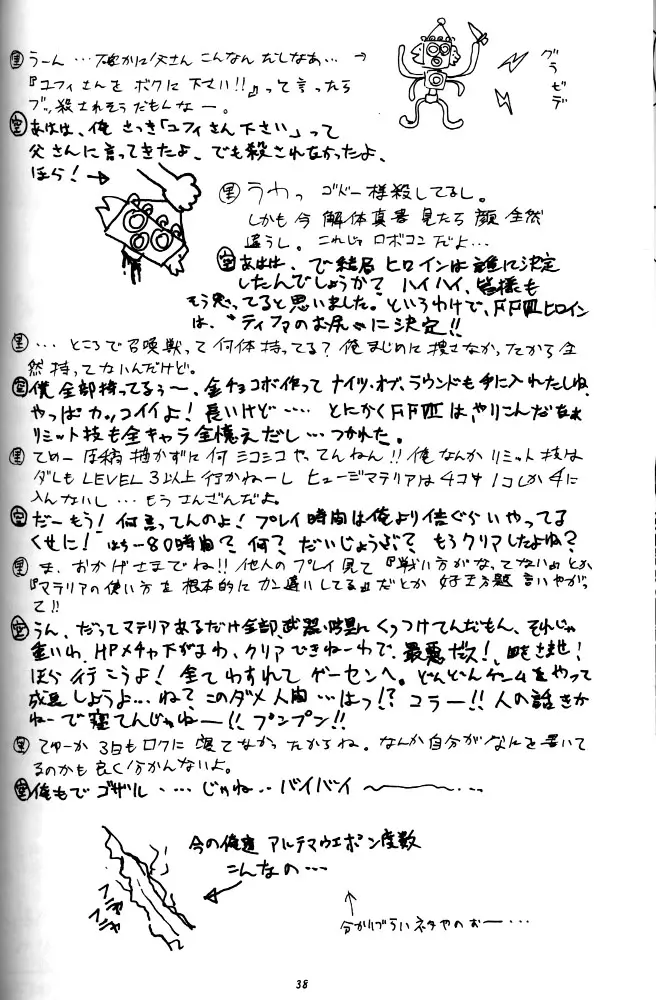 里 うーん…確かに父さんこんなんだしなあ… →
グラゼデ
『ユフィさんをボクに下さい!!』って言ったら
ブッ殺されそうだもんなー。
空 あはは、俺さっき「ユフィさん下さい」って
父さんに言ってきたよ、でも殺されなかったよ、
ほら!→
里 うわっ ゴドー様殺してるし。
しかも今解体真書見たら顔全然
違うし。これじゃロボコンだよ…
空 あはは、で結局ヒロインは誰に決定
したんでしょうか?ハイハイ、皆様も
もう思ってると思いました。というわけで、FFⅦヒロイン
は、"ティファのお尻"に決定!!
里 …ところで召喚獣って何体持ってる?俺まじめに捜さなかったから全
然持ってないんだけど。
空 僕全部持ってるぅ〜、金チョコボ作ってナイツ・オブ・ラウンドも手に入れたしね、
やっぱカッコイイよ!長いけど…… とにかくFFⅦは、やりこんだなぁ
リミット技も全キャラ全憶えだし…つかれた。
里 てめー原稿描かずに何ニコニコやってんねん!!俺なんかリミット技は
ダレもLEVEL3以上行かねーしヒュージマテリアは4コ中1コしか手に
入んないし…もうさんざんだよ。
空 だーもう!何言ってんのよ!プレイ時間は俺より倍ぐらいやってる
くせに! 80時間?何?だいじょうぶ?もうクリアしたよね?
里 ま、おかげさまでね!!他人のプレイ見て『戦い方がなってない』とか
『マテリアの使い方を根本的にカン違いしてる』だとか好き放題言いやがっ
て!!
空 うん、だってマテリアあるだけ全部、武器・防具にくっつけてんだもん、それじゃ
重いわ、HPメチャ下がるわ、クリアできねーわで、最悪だス!
ほら行こうよ!全てわすれてゲーセンへ。どんどんゲームをやって
成長しようよ…ね?このダメ人間…はっ!?コラー!!人の話きか
ねーで寝てんじゃねー!!プンプン!!
里 てゆーか3日もロクに寝てなかったからね。なんか自分がなにを書いて
るのかも良く分かんないよ。
空 俺もでゴザル・…じゃね‥バイバイ〜…
今の俺達 アルテマウエポン度数
こんなの…
フニャフニャ
↑
分かりづらいネタやのおー…
38